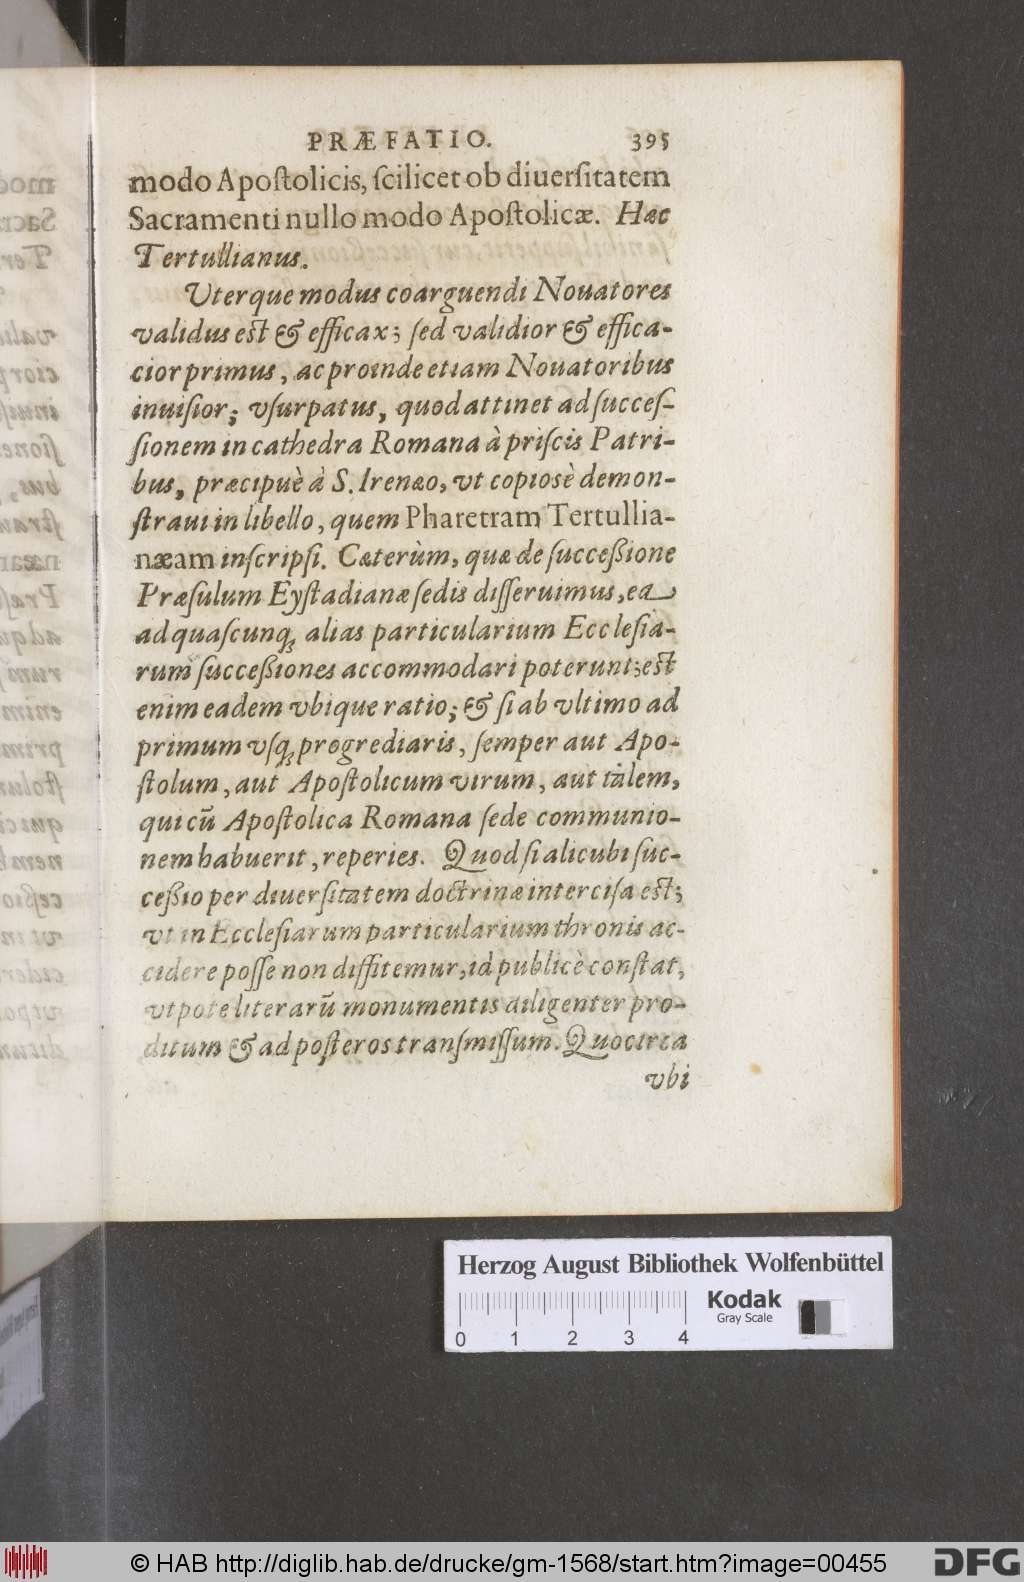 PRÆFATIO. 395
modo Apoſtolicis, ſcilicet ob diuerſitatem
Sacramenti nullo modo Apoſtolicæ. Hæc
Tertullianus.
Vterque modus coarguendi Nouatores
validus eſt & efficax; ſed validior & effica-
cior primus, ac proinde etiam Nouatoribus
inuiſior; vſurpatus, quod attinet ad ſucceſ-
ſionem in cathedra Romana à priſcis Patri-
bus, præcipuè à S. Irenæo, vt copiosè demon-
ſtraui in libello, quem Pharetram Tertullia-
næam inſcripſi. Cæterùm, quæ de ſucceßione
Præſulum Eyſtadianæ ſedis diſſeruimus, ea
ad quaſcunq; alias particularium Eccleſia-
rum ſucceßiones accommodari poterunt; eſt
enim eadem vbique ratio; & ſi ab vltimo ad
primum vſq; progrediaris, ſemper aut Apo-
ſtolum, aut Apoſtolicum virum, aut talem,
qui cū Apoſtolica Romana ſede communio-
nem habuerit, reperies. Quod ſi alicubi ſuc-
ceßio per diuerſitatem doctrinæ interciſa eſt;
vt in Eccleſiarum particularium thronis ac-
cidere poſſe non diffitemur, id publicè conſtat,
vtpote literarū monumentis diligenter pro-
ditum & ad poſteros tranſmiſſum. Quocirca
vbi
Herzog August Bibliothek Wolfenbüttel
Kodak
Gray Scale
0 1 2 3 4
© HAB http://diglib.hab.de/drucke/gm-1568/start.htm?image=00455
DFG